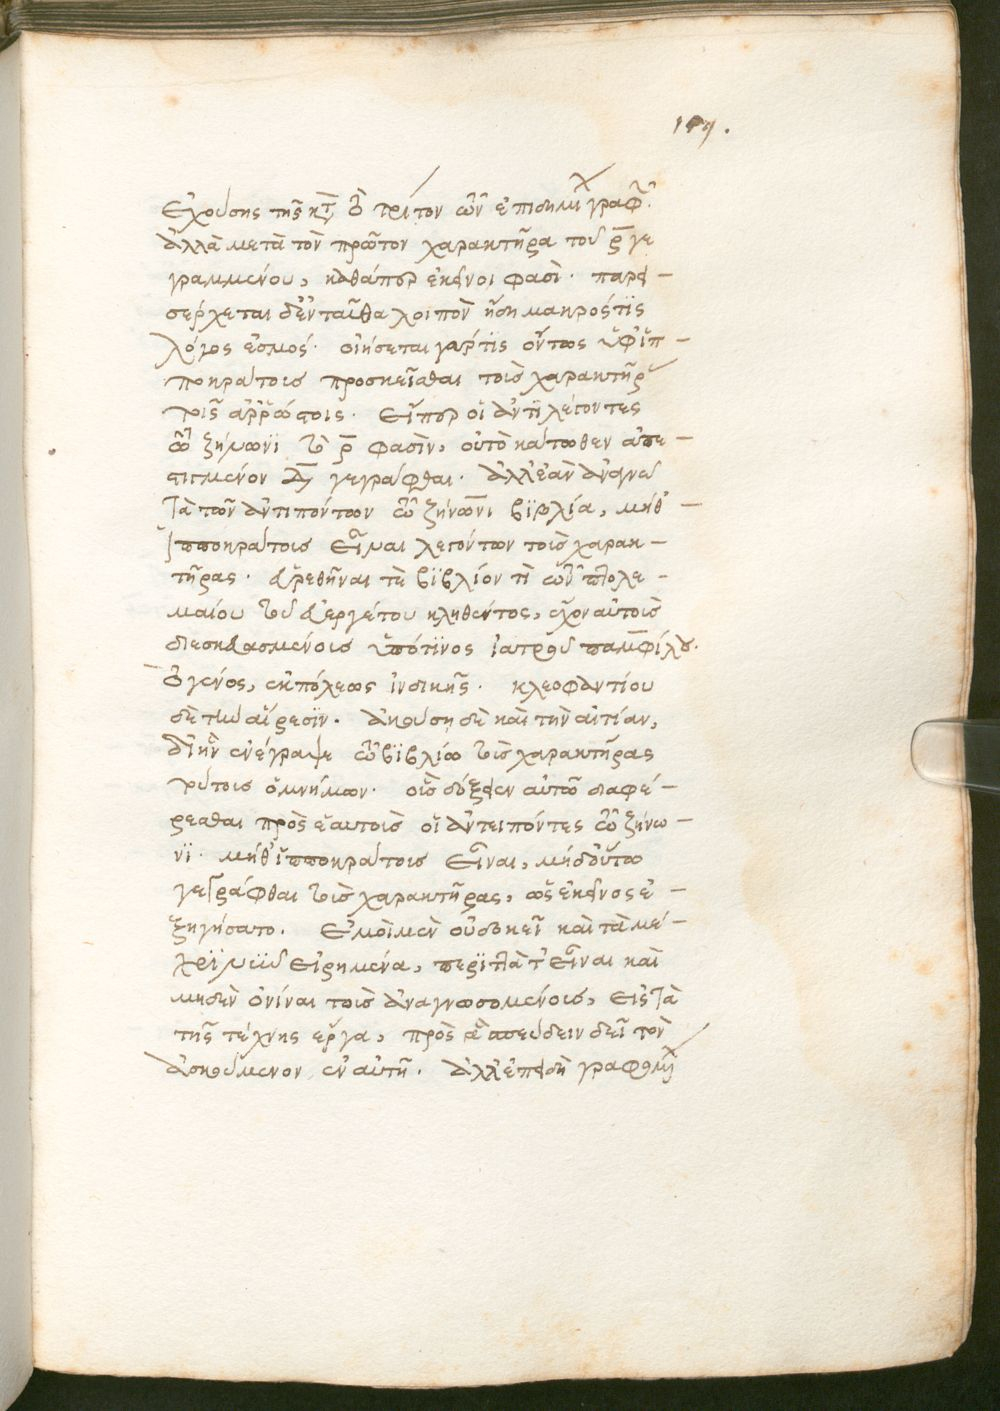 ἐχούσης τῆς κτ̅ τὸ τρίτον τῶν ἐπιδημιῶν γραφῆς.
ἀλλὰ μετὰ τὸν πρῶτον χαρακτῆρα τοῦ ρ̅ γε
γραμμένου, καθάπερ ἐκεῖνοι φασὶ· παρει-
σέρχεται δ' ἐνταῦθα λοιπὸν ἤδη μακρός τις
λόγος ἑσμός· οἰήσεται γάρ τις ὄντως ὑφ' ἱπ-
ποκράτους προσκεῖσθαι τοὺς χαρακτῆρας
τοῖς ἀρρώστοις. εἴπερ οἱ ἀντιλέγοντες
τῷ ζήνωνι τὸ ρ̅ φασὶν, οὐ τὸ κάτωθεν ἀπε-
γεγράφθαι. ἀλλ' ἐὰν ἀναγνῶ
τὰ τῶν ἀντιπόντων τῷ ζήνωνι βιβλία, μήθ' -
ἱπποκράτους εἶναι λεγόντων τοὺς χαρακ-
τῆρας. εὑρεθῆναι τὲ βιβλίον τὶ τῶν πτολε-
μαίου τοῦ εὐεργέτου κληθέντος, ἔχον αὐτοὺς
διεσκευασμένους ὑπό τινος ἰατροῦ παμφίλου.
τὸ γένος, ἐκ πόλεως ἰνδικῆς. κλεοφαντίου
δὲ τὴν αἵρεσιν. ἀκούσῃ δὲ καὶ τὴν αἰτίαν,
δι' ἣν ἐνέγραψε τῷ βιβλίῳ τοὺς χαρακτῆρας
τούτους ὁ μνήμων. οἷς δόξειεν αὐτῷ διαφέ-
ρεσθαι πρὸς ἑαυτοὺς οἱ ἀντειπόντες τῷ ζήνω-
νι. μήθ' ἱπποκράτους εἶναι, μήδ' οὕτω
γεγράφθαι τοὺς χαρακτῆρας, ὡς ἐκεῖνος ἐ-
ξηγήσατο. ἐμοὶ μὲν οὖν δοκεῖ καὶ τὰ μέ-
χρι νῦν εἰρημένα, περιττὰ τ' εἶναι καὶ
μηδὲν ὀνίναι τοὺς ἀναγνωσομένους, εἰς τὰ
τῆς τέχνης ἔργα, πρὸς ἃ σπεύδειν δεῖ τὸν
ἀσκούμενον ἐν αὐτῇ. ἀλλ' ἐπειδὴ γραφθῆναι